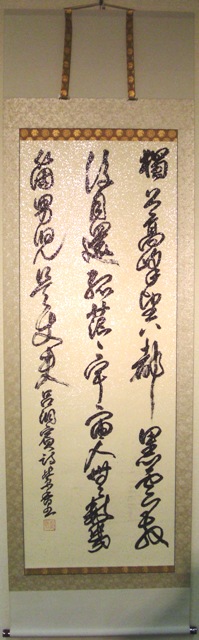 獨上高峰望八都黑雲散
後月還孤茫々宇宙人無數幾
箇男兒是丈夫 呂洞賓詩